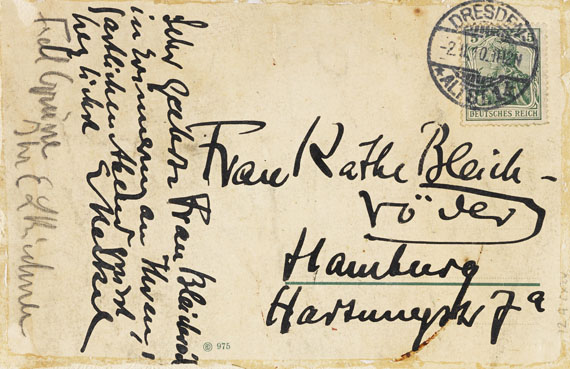 Sehr Geehrte Frau Bleichröd
in Erinnerung an Ihren
Abend grüsst
herzlichst E Heckel
Grüsse
Ihr E L Kirchner
DRESDEN
ALTST.
DEUTSCHES REICH
Frau Käthe Bleich-
röder
Hamburg
Hartungstr 7a
© 975